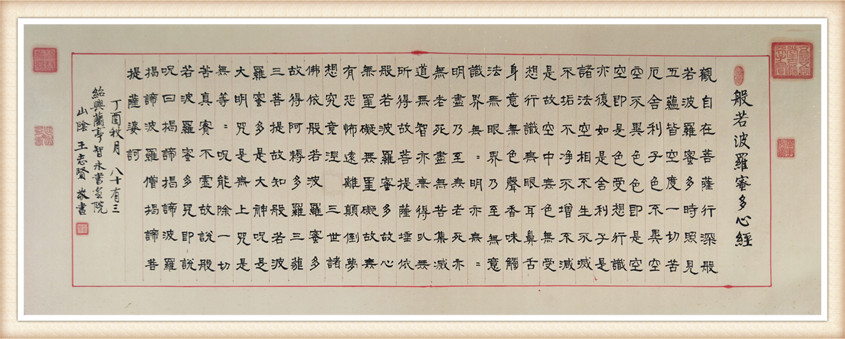 般若波羅蜜多心經
觀自在菩薩行深般
若波羅蜜多時照見
五蘊皆空度一切苦
厄舍利子色不異空
空不異色色即是空
空即是色受想行識
亦復如是舍利子是
諸法空相不生不滅
不垢不淨不增不減
是故空中無色無受
想行識無眼耳鼻舌
身意無色聲香味觸
法無眼界乃至無意
識界無〻明亦無〻
明盡乃至無老死亦
無老死盡無苦集滅
道無智亦無得以無
所得故菩提薩埵依
般若波羅蜜多故心
無罣礙無罣礙故無
有恐怖遠離顛倒夢
想究竟涅槃三世諸
佛依般若波羅蜜多
故得阿耨多羅三藐
三菩提故知般若波
羅蜜多是大神咒是
大明咒是無上咒是
無等〻咒能除一切
苦真實不虛故說般
若波羅蜜多咒即說
咒曰揭諦揭諦波羅
揭諦波羅僧揭諦菩
提薩婆訶
丁酉秋月 八十有三
紹興蘭亭智永書畫院
山陰王志賢敬書